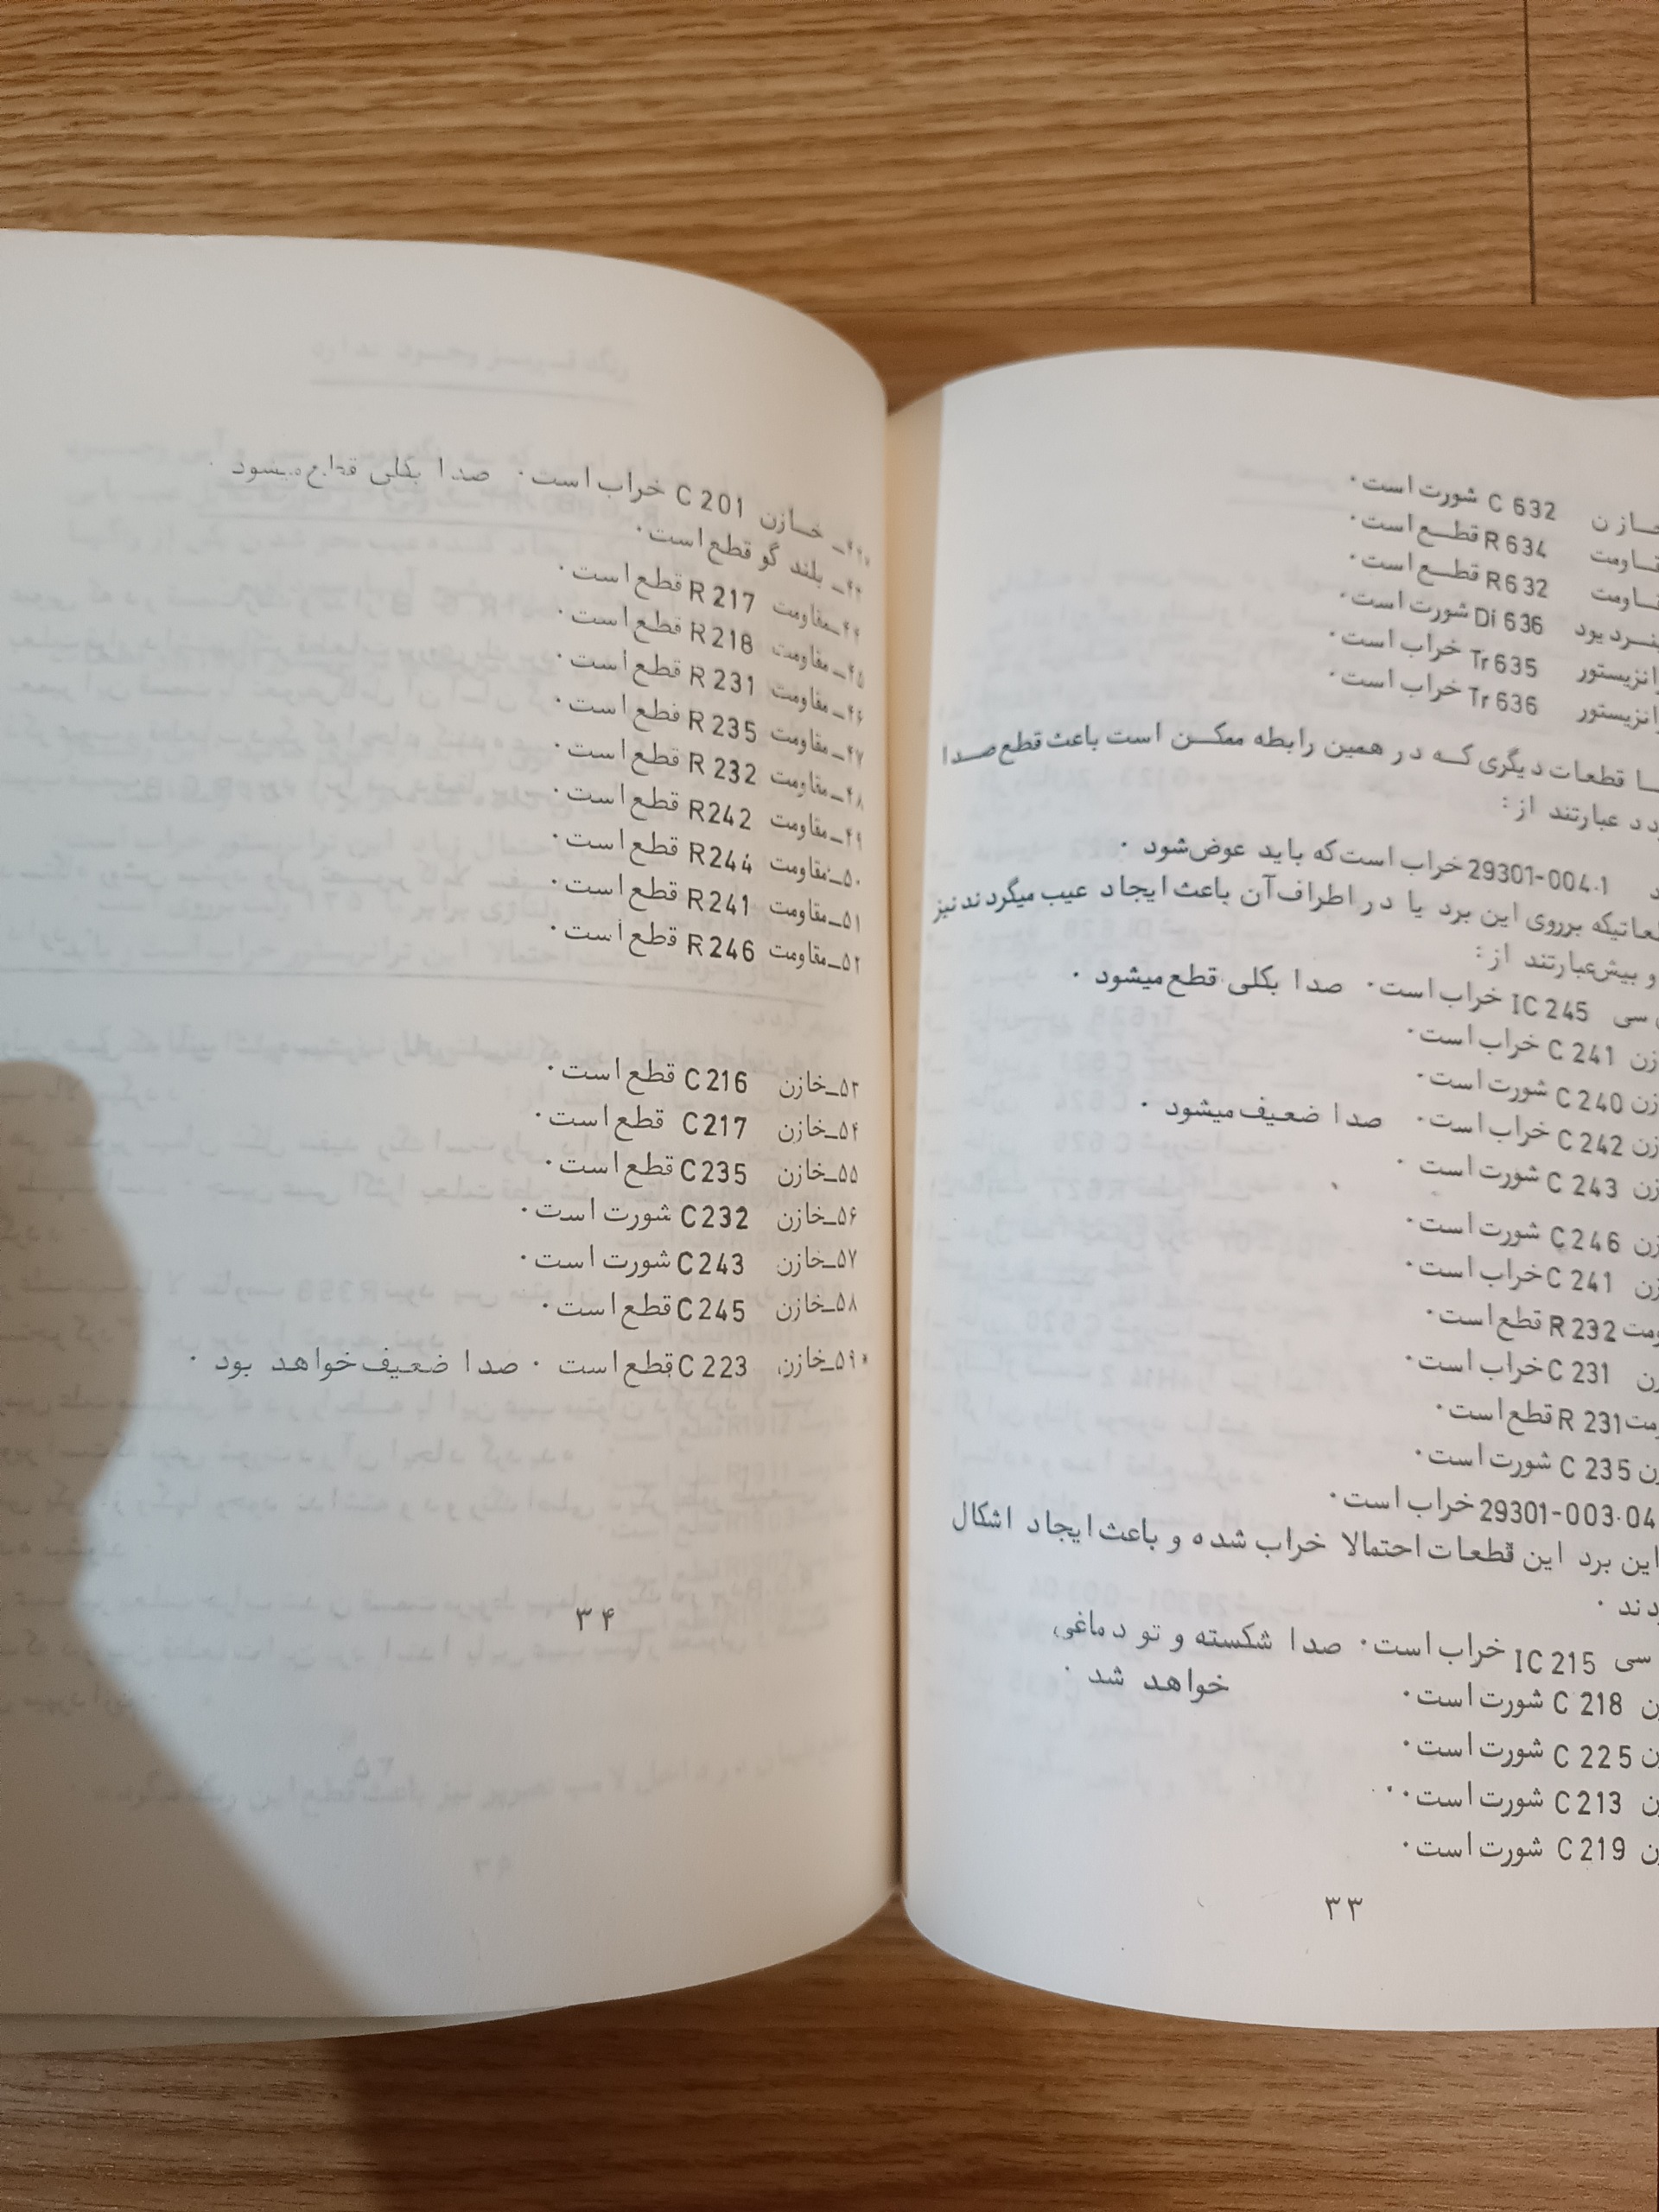 C 632 شورت است.
R 634 قطع است.
R 632 قطع است.
Di 636 شورت است.
Tr 635 خراب است.
Tr 636 خراب است.
قطعات دیگری که در همین رابطه ممکن است باعث قطع صدا
عبارتند از:
29301-004.1 خراب است که باید عوض شود.
برروی این برد یا در اطراف آن باعث ایجاد عیب میگردند نیز
و بیش عبارتند از:
سی IC 245 خراب است. صدا بکلی قطع میشود.
C 241 خراب است.
C 240 شورت است.
C 242 خراب است. صدا ضعیف میشود.
C 243 شورت است.
C 246 شورت است.
C 241 خراب است.
R 232 قطع است.
C 231 خراب است.
R 231 قطع است.
C 235 شورت است.
29301-003.04 خراب است.
این برد این قطعات احتمالا خراب شده و باعث ایجاد اشکال
سی IC 215 خراب است. صدا شکسته و تو دماغی
خواهد شد.
C 218 شورت است.
C 225 شورت است.
C 213 شورت است.
C 219 شورت است.
۳۳
خازن C 201 خراب است. صدا بکلی قطع میشود.
بلند گو قطع است.
۴۴ـ مقاومت R 217 قطع است.
۴۵ـ مقاومت R 218 قطع است.
۴۶ـ مقاومت R 231 قطع است.
۴۷ـ مقاومت R 235 قطع است.
۴۸ـ مقاومت R 232 قطع است.
۴۹ـ مقاومت R 242 قطع است.
۵۰ـ مقاومت R 244 قطع است.
۵۱ـ مقاومت R 241 قطع است.
۵۲ـ مقاومت R 246 قطع است.
۵۳ـ خازن C 216 قطع است.
۵۴ـ خازن C 217 قطع است.
۵۵ـ خازن C 235 قطع است.
۵۶ـ خازن C 232 شورت است.
۵۷ـ خازن C 243 شورت است.
۵۸ـ خازن C 245 قطع است.
*۵۹ـ خازن C 223 قطع است. صدا ضعیف خواهد بود.
۳۴